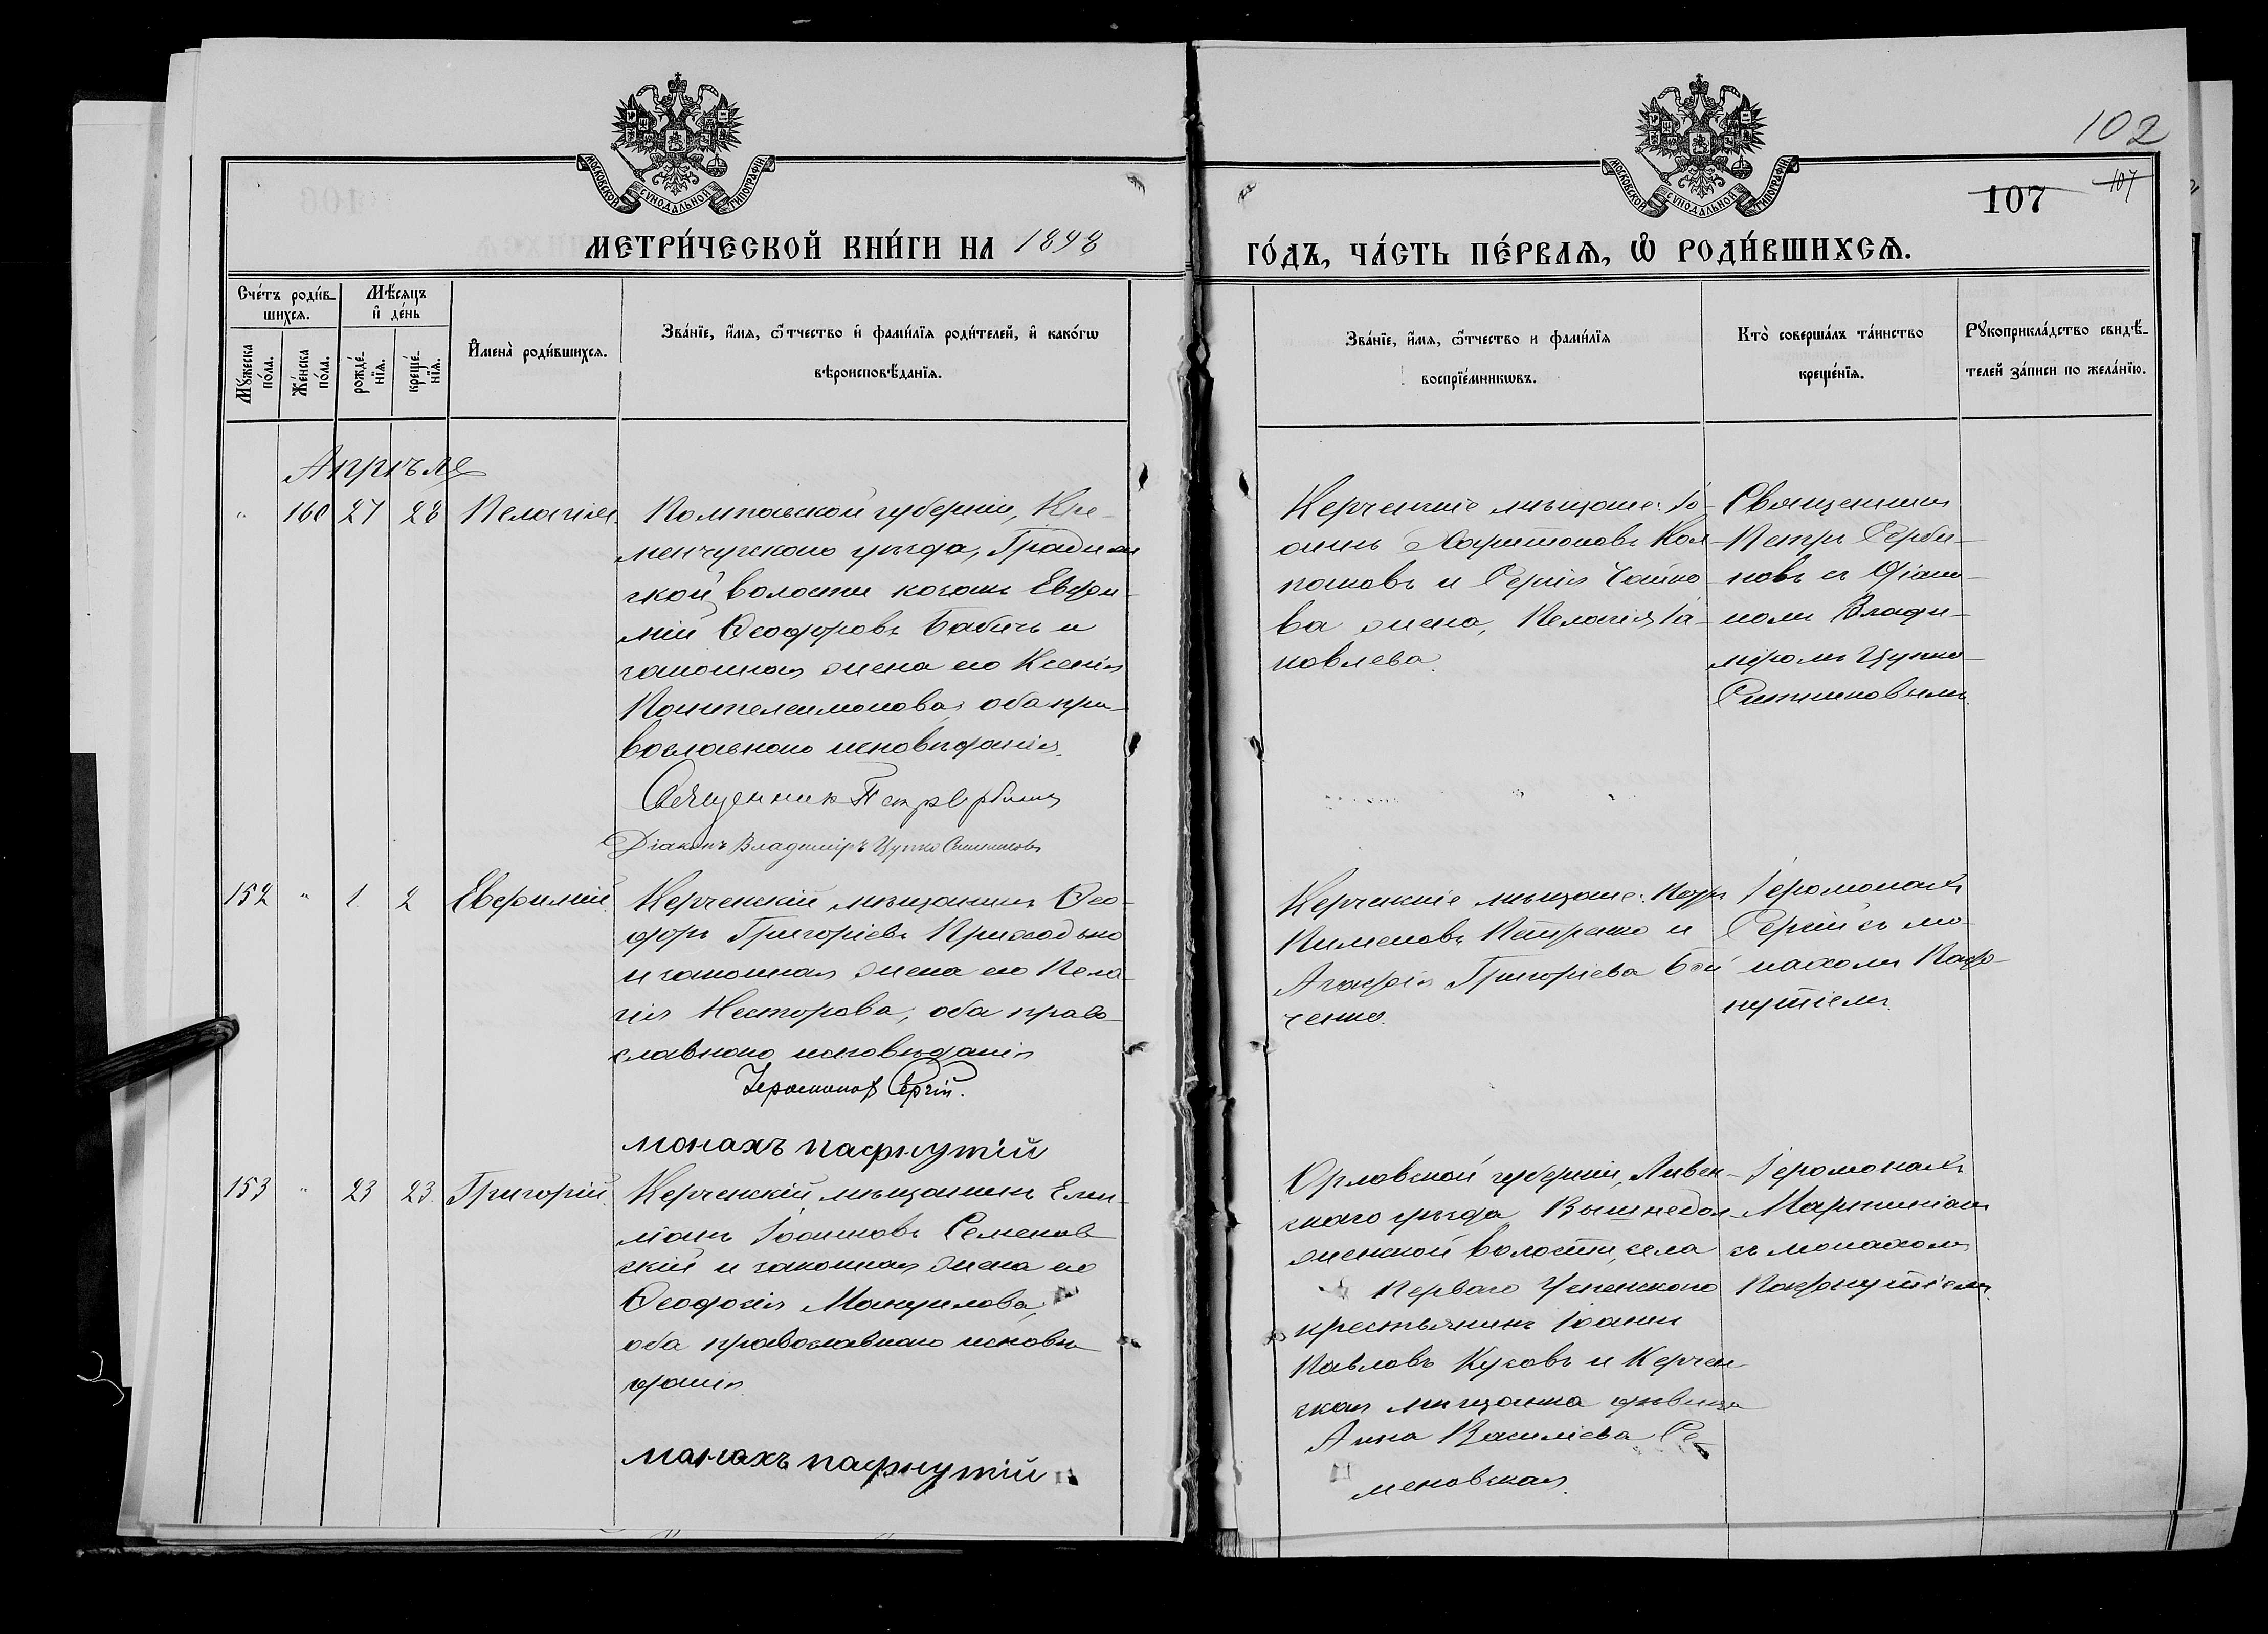 102
107
107
МОСКОВСКОЙ СѴНОДАЛЬНОЙ ТИПОГРАФІИ
МОСКОВСКОЙ СѴНОДАЛЬНОЙ ТИПОГРАФІИ
МЕТРИ́ЧЕСКОЙ КНИ́ГИ НА 1898
ГО́ДЪ, ЧА́СТЬ ПЕ́РВАѦ, Ѡ҆ РОДИ́ВШИХСѦ.
Сче́тъ роди́в-
шихсѧ.
Мѣ́сѧцъ
и҆ де́нь
Мꙋ́жеска
по́ла.
Же́нска
по́ла.
рожде́-
нїѧ.
креще́-
нїѧ.
И҆мена̀ роди́вшихсѧ.
Зва́нїе, и҆́мѧ, ѻ҆́тчество и҆ фами́лїѧ роди́телей, и҆ како́гѡ
вѣроисповѣ́данїѧ.
Зва́нїе, и҆́мѧ, ѻ҆́тчество и фами́лїѧ
воспрїе́мникѡвъ.
Кто̀ соверша́лъ та́инство
креще́нїѧ.
Рꙋкоприкла́дство свидѣ́-
телей за́писи по жела́нїю.
Апрѣля
" 160 27 28 Пелагія
Полтавской губерніи, Кре-
менчугскаго уѣзда, Градиж
ской волости козакъ Евфи-
мій Ѳеодоровъ Бабичъ и
законная жена его Ксенія
Пантелеимонова, оба пра-
вославнаго исповѣданія.
Священникъ Петръ Сербиновъ
Діаконъ Владиміръ Цупко Ситниковъ
Керченскіе мѣщане: Іо-
аннъ Харитоновъ Кол-
паковъ и Сергія Чайко-
ва жена, Пелагія Іа-
ковлева.
Священникъ
Петръ Серби-
новъ съ Діако-
номъ Влади-
міромъ Цупко-
Ситниковымъ.
152 " 1 2 Евфимій
Керченскій мѣщанинъ Ѳео-
доръ Григоріевъ Приходько
и законная жена его Пела-
гія Несторова, оба право-
славнаго исповѣданія
Іеромонах Сергій.
монахъ пафнутій
Керченскіе мѣщане:
Пименовъ Петренко и
Агафія Григоріева
ченко.
Іеромонахъ
Сергій съ мо-
нахомъ Паф-
нутіемъ.
153 " 23 23 Григорій
Керченскій мѣщанинъ Еми-
ліанъ Іоанновъ Семенов
скій и законная жена его
Ѳеодосія Мануилова,
оба православнаго исповѣ-
данія
монахъ пафнутій
Орловской губерніи, Ливен-
скаго уѣзда Вышнедол-
женской волости, села
Перваго Успенскаго
крестьянинъ Іоаннъ
Павловъ Кусовъ и Керчен
ская мѣщанка дѣвица
Анна Василіева Се-
меновская.
Іеромонахъ
Мартиніанъ
съ монахомъ
Пафнутіемъ.